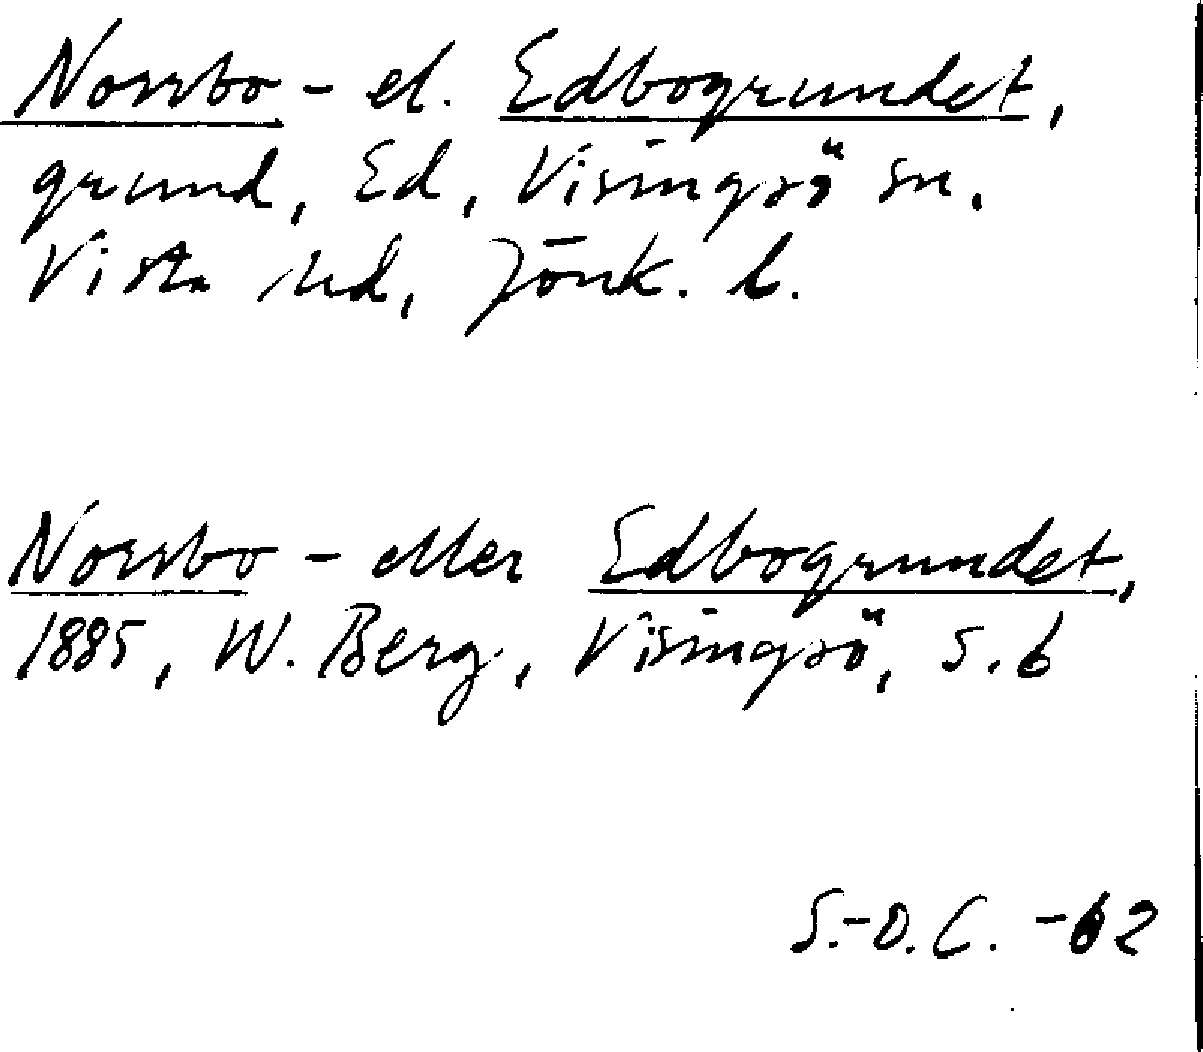 Norrbo - el. Edbogrundet,
grund, Ed, Visingsö sn.
Vista hd, Jönk. l.
Norrbo - eller Edbogrundet,
1885, W. Berg, Visingsö, s. 6
S.-O.C. -62